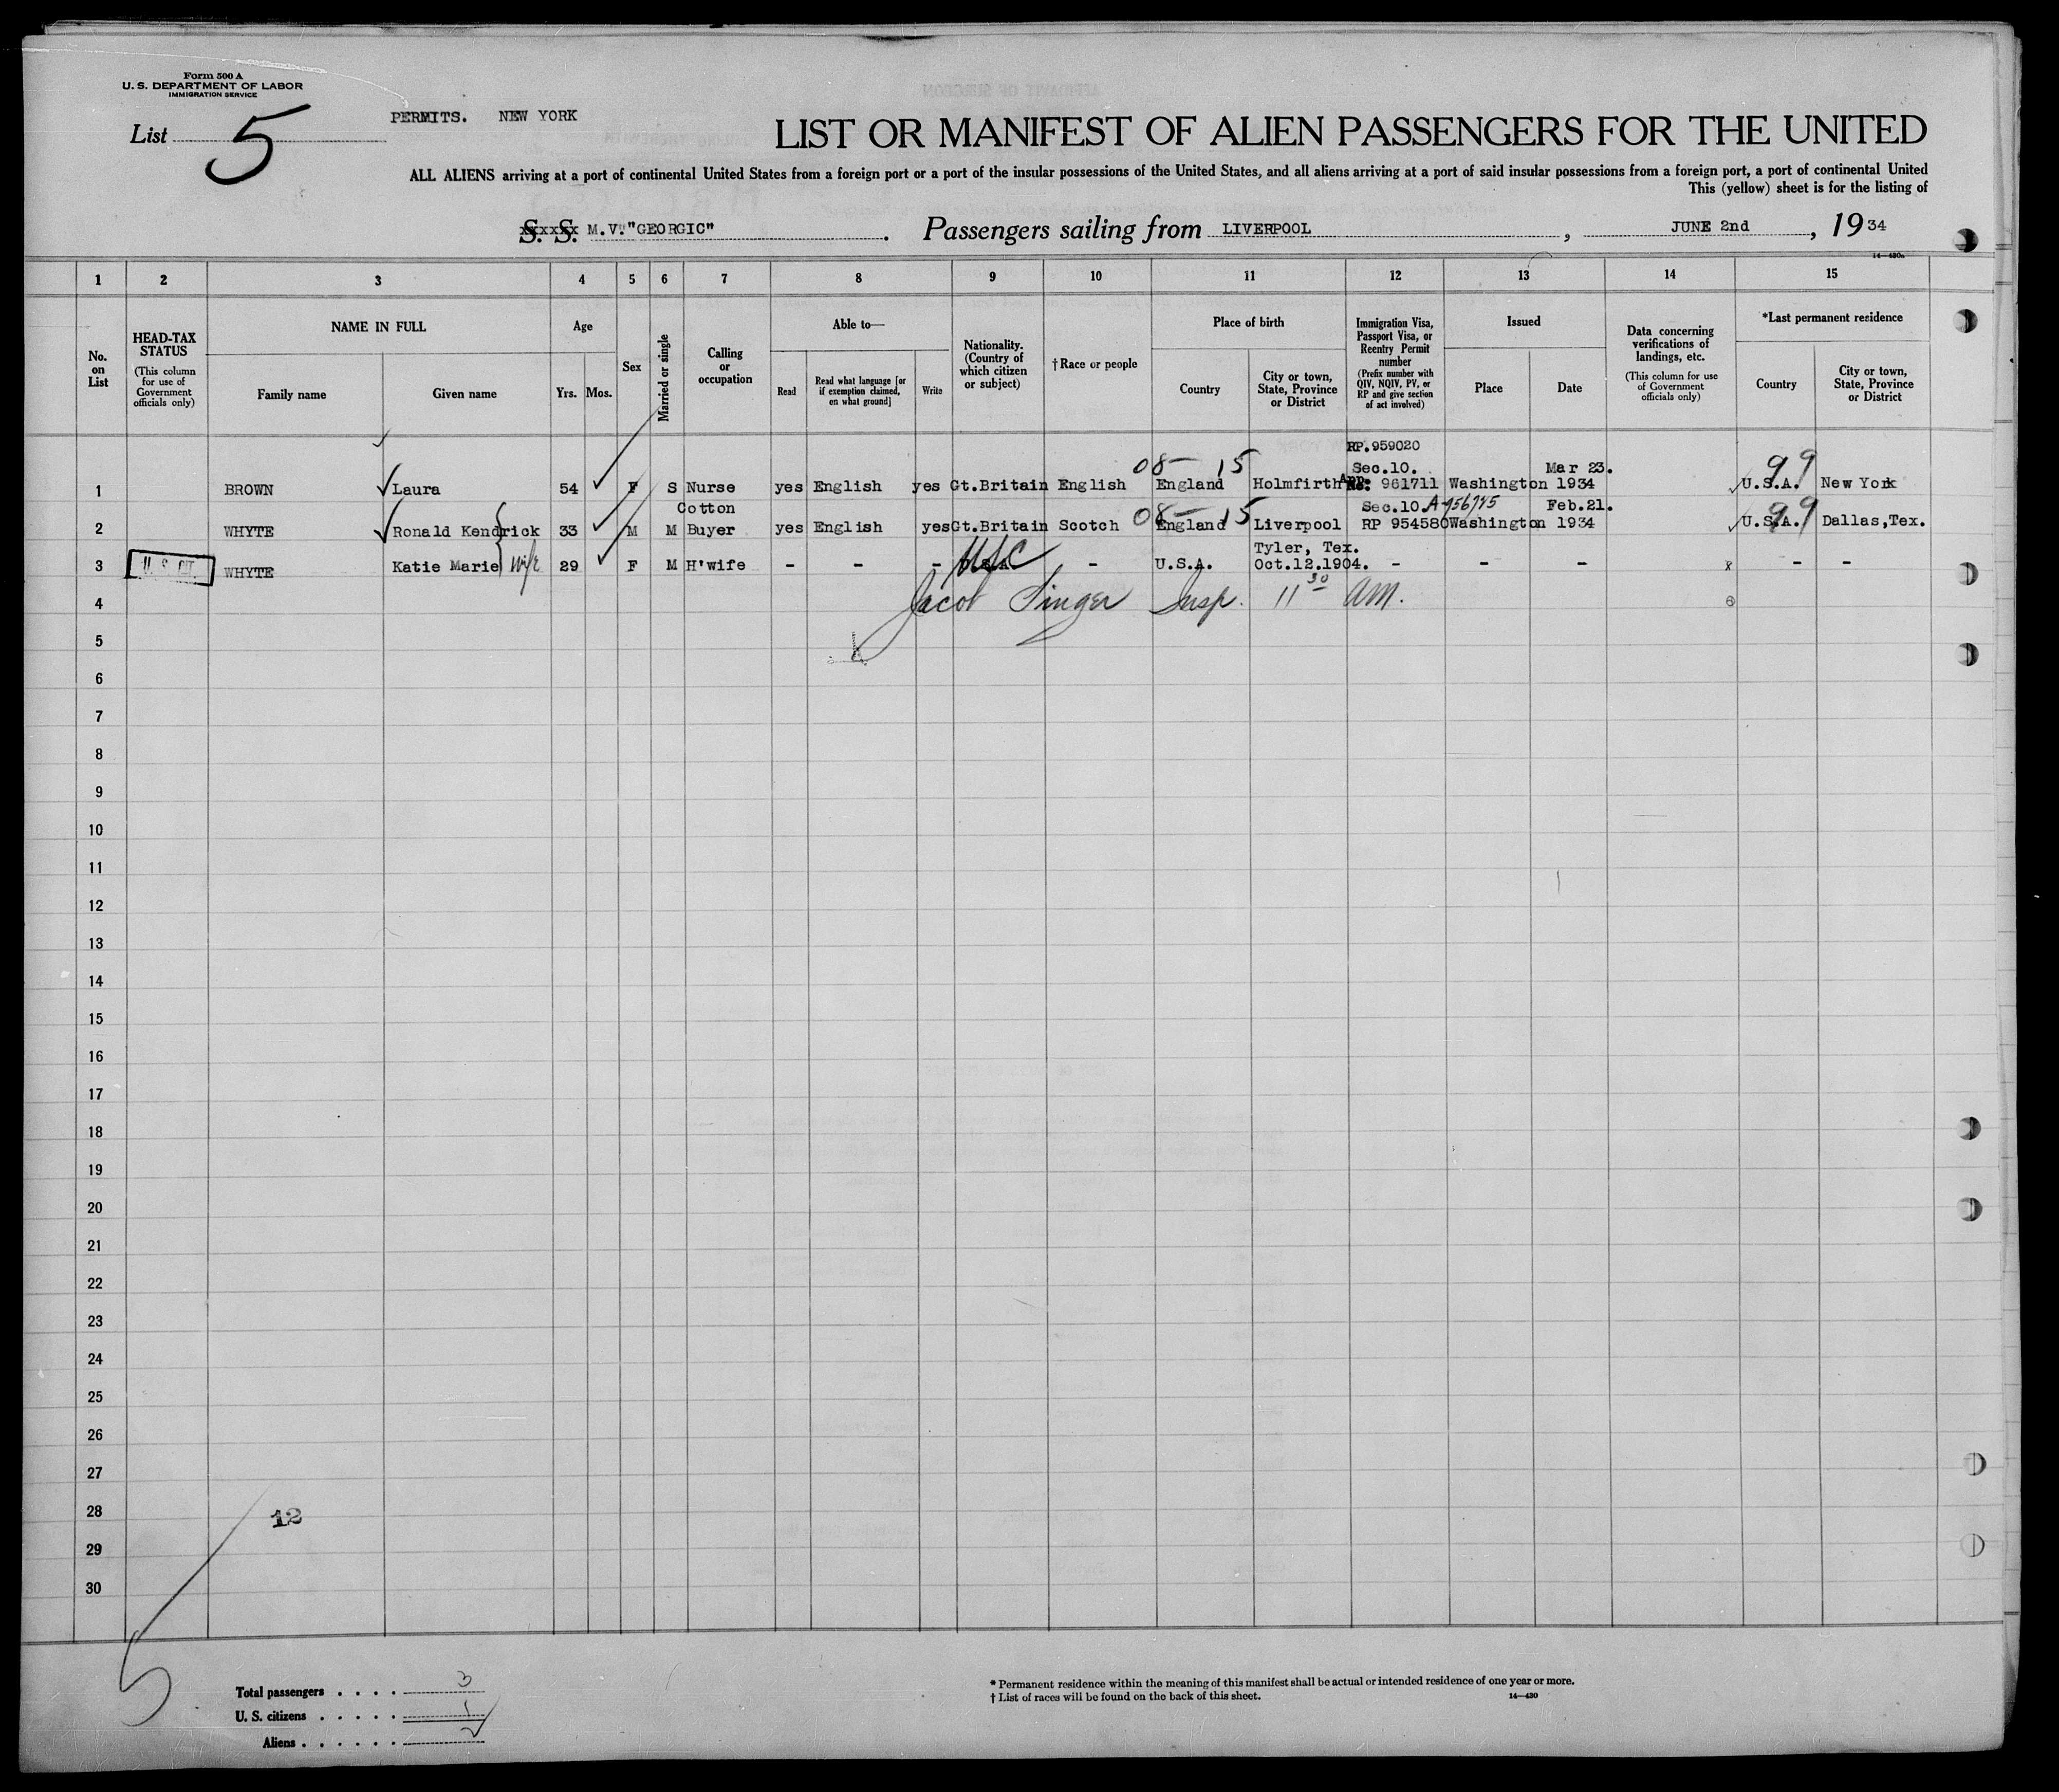 Form 500 A
U. S. DEPARTMENT OF LABOR
IMMIGRATION SERVICE
List 5
PERMITS. NEW YORK
LIST OR MANIFEST OF ALIEN PASSENGERS FOR THE UNITED
ALL ALIENS arriving at a port of continental United States from a foreign port or a port of the insular possessions of the United States, and all aliens arriving at a port of said insular possessions from a foreign port, a port of continental United
This (yellow) sheet is for the listing of
S. S. M.V."GEORGIC" . Passengers sailing from LIVERPOOL , JUNE 2nd , 19 34
14—430a
1 2 3 4 5 6 7 8 9 10 11 12 13 14 15
No. on List
HEAD-TAX STATUS
(This column for use of Government officials only)
NAME IN FULL
Family name Given name
Age
Yrs. Mos.
Sex
Married or single
Calling or occupation
Able to—
Read
Read what language [or if exemption claimed, on what ground]
Write
Nationality. (Country of which citizen or subject)
†Race or people
Place of birth
Country
City or town, State, Province or District
Immigration Visa, Passport Visa, or Reentry Permit number
(Prefix number with QIV, NQIV, PV, or RP and give section of act involved)
Issued
Place Date
Data concerning verifications of landings, etc.
(This column for use of Government officials only)
*Last permanent residence
Country
City or town, State, Province or District
RP.959020
08 15 Sec.10. Mar 23. 99
1 BROWN Laura 54 F S Nurse yes English yes Gt.Britain English England Holmfirth 961711 Washington 1934 U.S.A. New York
Cotton Sec.10. A-956745 Feb.21.
2 WHYTE Ronald Kendrick 33 M M Buyer yes English yes Gt.Britain Scotch 08 England 15 Liverpool RP 954580 Washington 1934 U.S.A. 99 Dallas,Tex.
USC Tyler, Tex.
3 U. S. CIT. WHYTE Katie Marie wife 29 F M H'wife - - - - U.S.A. Oct.12.1904. - - - x - -
4 Jacob Singer Insp. 11 30 AM.
5
6
7
8
9
10
11
12
13
14
15
16
17
18
19
20
21
22
23
24
25
26
27
28 12
29
30
5
Total passengers . . . . 3
U. S. citizens . . . . . 1
Aliens . . . . . . 2
* Permanent residence within the meaning of this manifest shall be actual or intended residence of one year or more.
† List of races will be found on the back of this sheet. 14—430